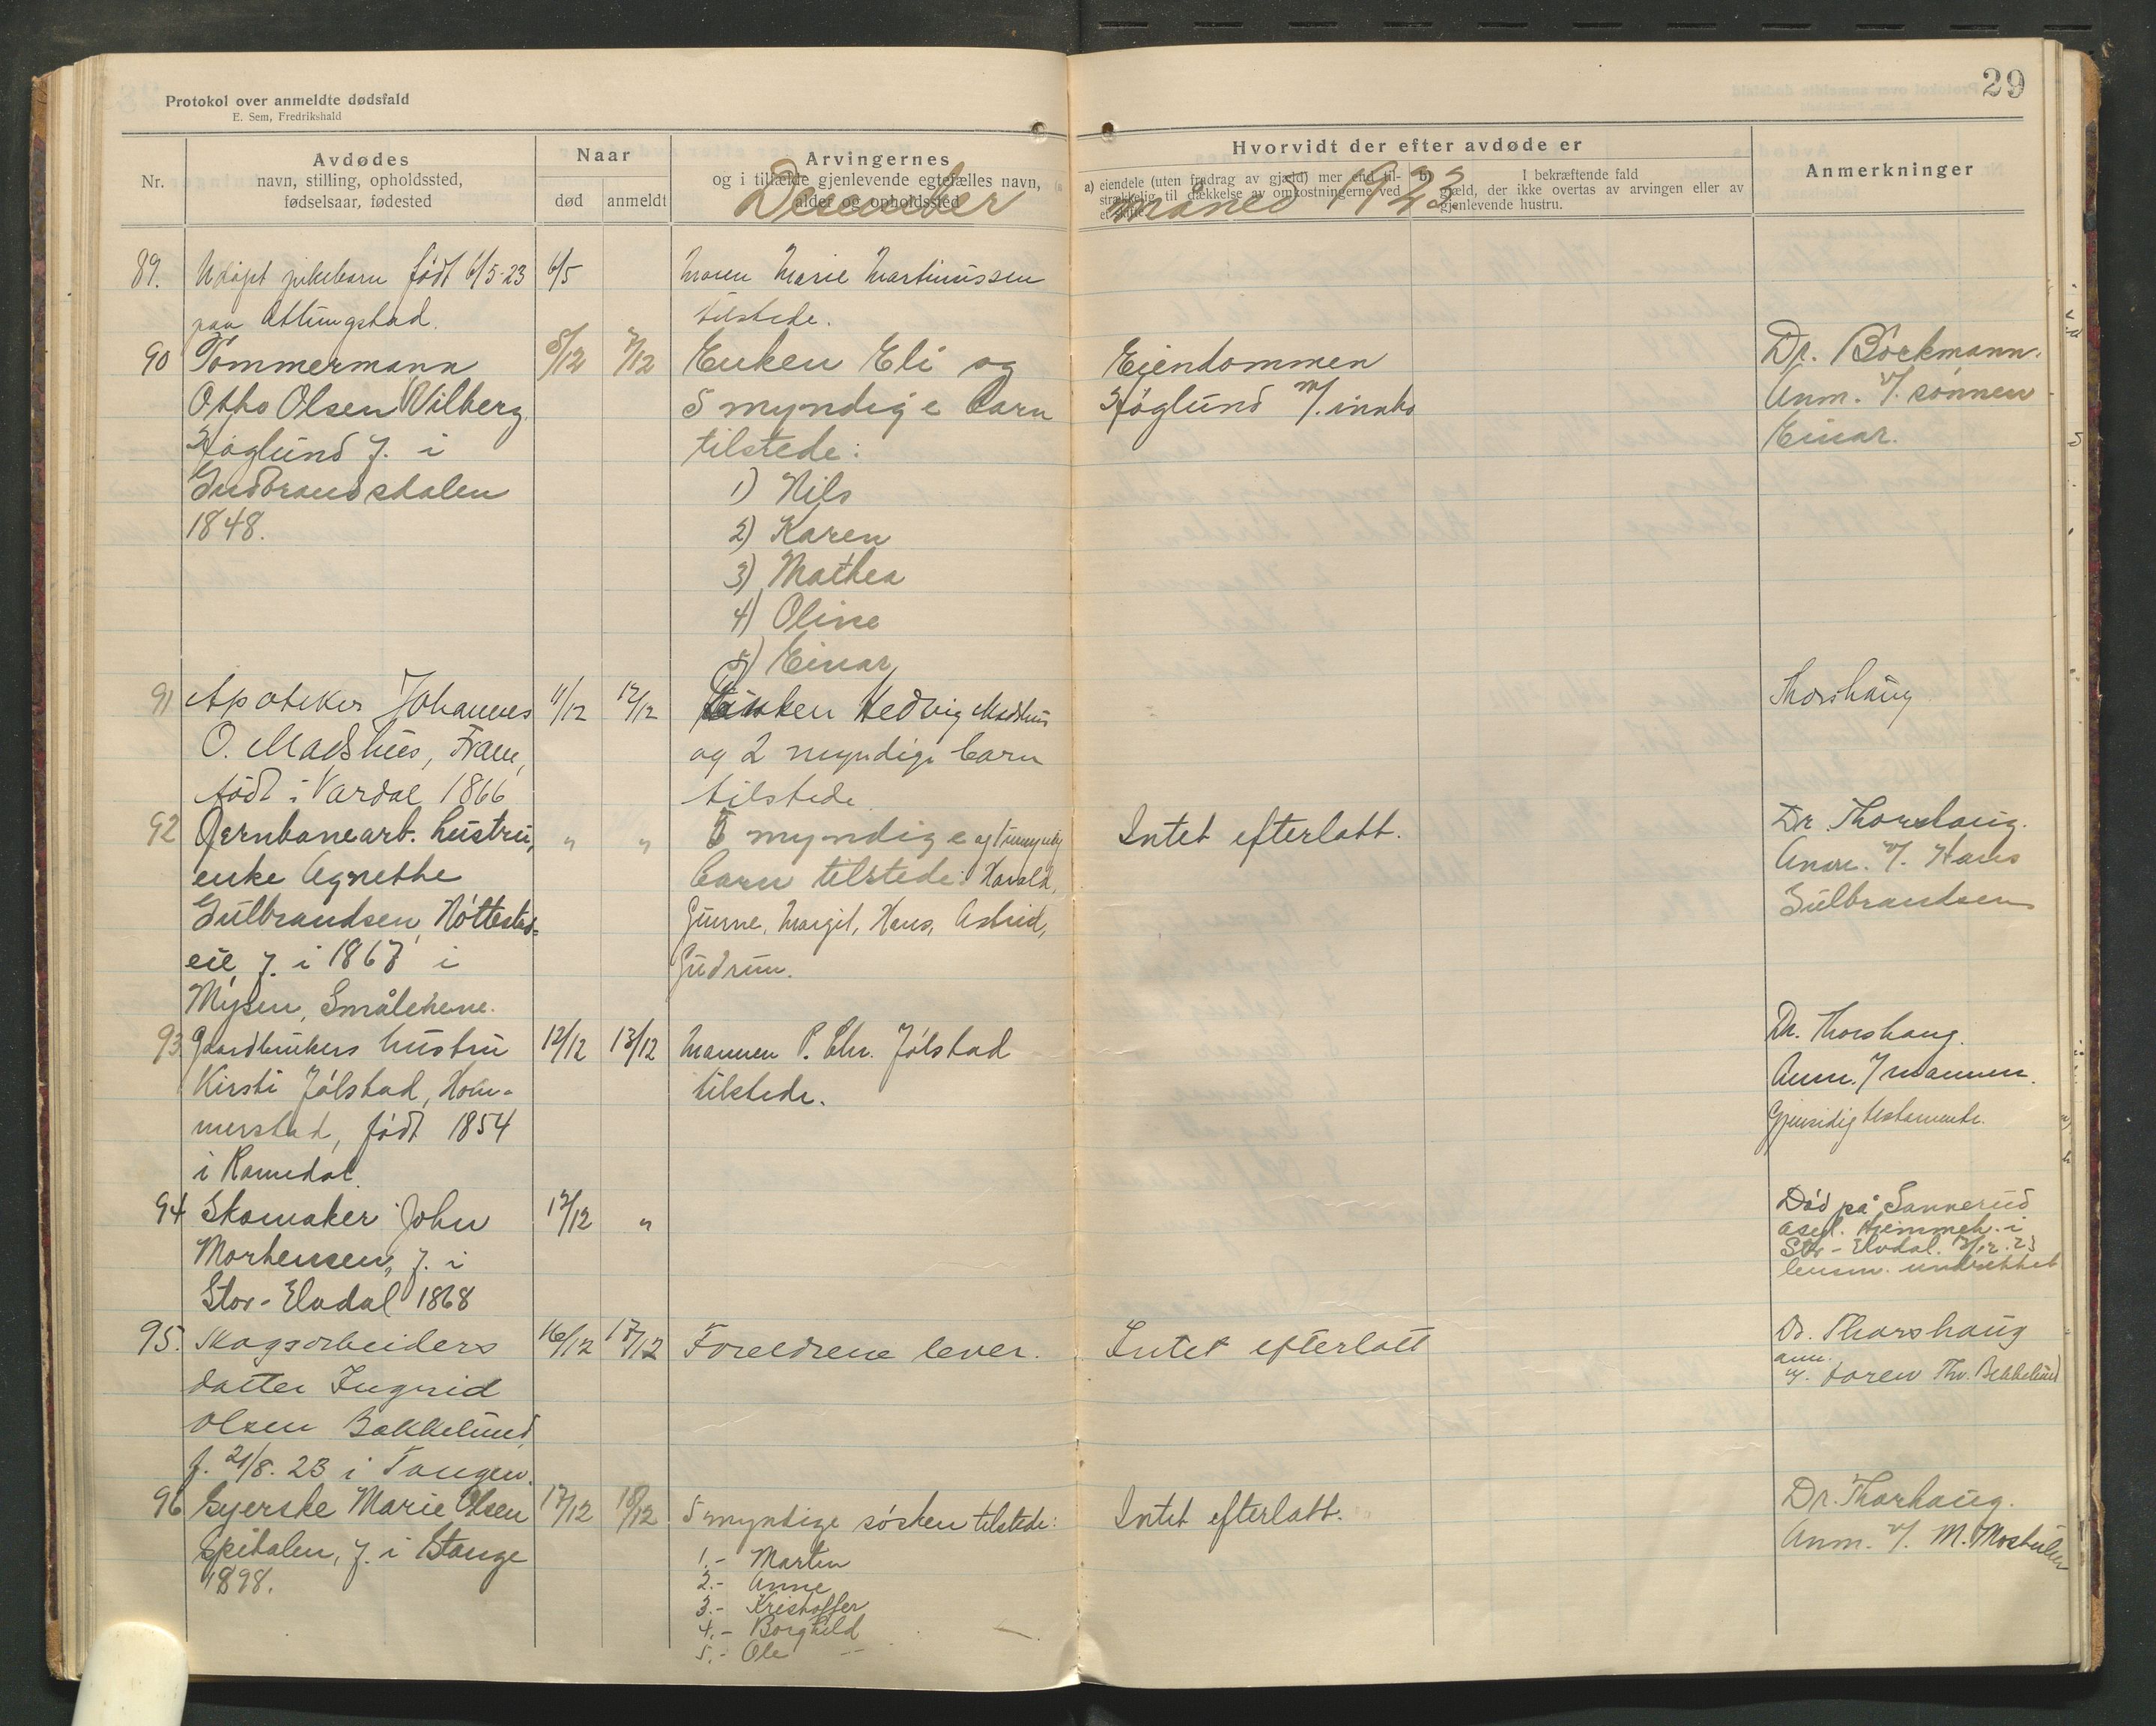 29
Protokol over anmeldte dødsfald
E. Sem, Fredrikshald
Nr.
Avdødes
navn, stilling, opholdssted,
fødselsaar, fødested
Naar
død
anmeldt
Arvingernes
og i tilfælde gjenlevende egtefælles navn,
alder og opholdssted
Desember
Hvorvidt der efter avdøde er
a) eiendele (uten fradrag av gjæld) mer end til-
strækkelig til dækkelse av omkostningerne ved
et skifte
b) I bekræftende fald
gjæld, der ikke overtas av arvingen eller av
gjenlevende hustru.
måned 1923.
Anmerkninger
89. Udøpt pikebarn født 6/5-23
paa Ottungstad.
6/5
Maren Marie Martinussen
tilstede.
90 Tømmermann
Otho Olsen Vilberg,
Høglund f. i
Gudbrandsdalen
1848.
5/12 7/12
Enken Eli og
5 myndige barn
tilstede:
1) Nils
2) Karen
3) Mathea
4) Oline
5) Einar
Eiendommen
Høglund m/. innbo
Dr. Böckmann.
Anm. v/. sønnen
Einar.
91 Apoteker Johannes
O. Madshus, Fram,
født i Vardal 1866
11/12 12/12
Enken Hedvig Madshus
og 2 myndige barn
tilstede
Thorshaug
92 Jernbanearb. hustru,
enke Agnethe
Gulbrandsen, Nøttestad-
eie, f. i 1867 i
Mysen, Smålenene.
" "
5 myndige og 1 umyndig
barn tilstede: Harald,
Gunne, Margit, Hans, Astrid,
Gudrun.
Intet efterlatt.
Dr. Thorshaug.
Anm. v/. Hans
Gulbrandsen
93 Gaardbrukers hustru
Kirsti Jølstad, Hom-
merstad, født 1854
i Romedal.
12/12 13/12
Mannen P. Chr. Jølstad
tilstede.
Dr. Thorshaug.
Anm. v/ mannen.
Gjensidig testamente.
94 Skomaker John
Mortensen, f. i
Stor-Elvdal 1868
12/12 "
Død på Sannerud
asyl. Hjemmeh. i
Stor-Elvdal. 13/12.23
lensm. underrettet
95. Skogsarbeiders
datter Ingrid
Olsen Bakkelund,
f. 21/8.23 i Tangen.
16/12 17/12
Foreldrene lever.
Intet efterlatt
Dr. Thorshaug
anm.
v/. faren Thv. Bakkelund
96 Syerske Marie Olsen
Spitalen, f. i Stange
1898.
17/12 18/12
5 myndige søsken tilstede:
1.- Martin
2.- Anne
3.- Kristoffer
4.- Borghild
5.- Ole
Intet efterlatt.
Dr. Thorhaug.
Anm. v/. M.